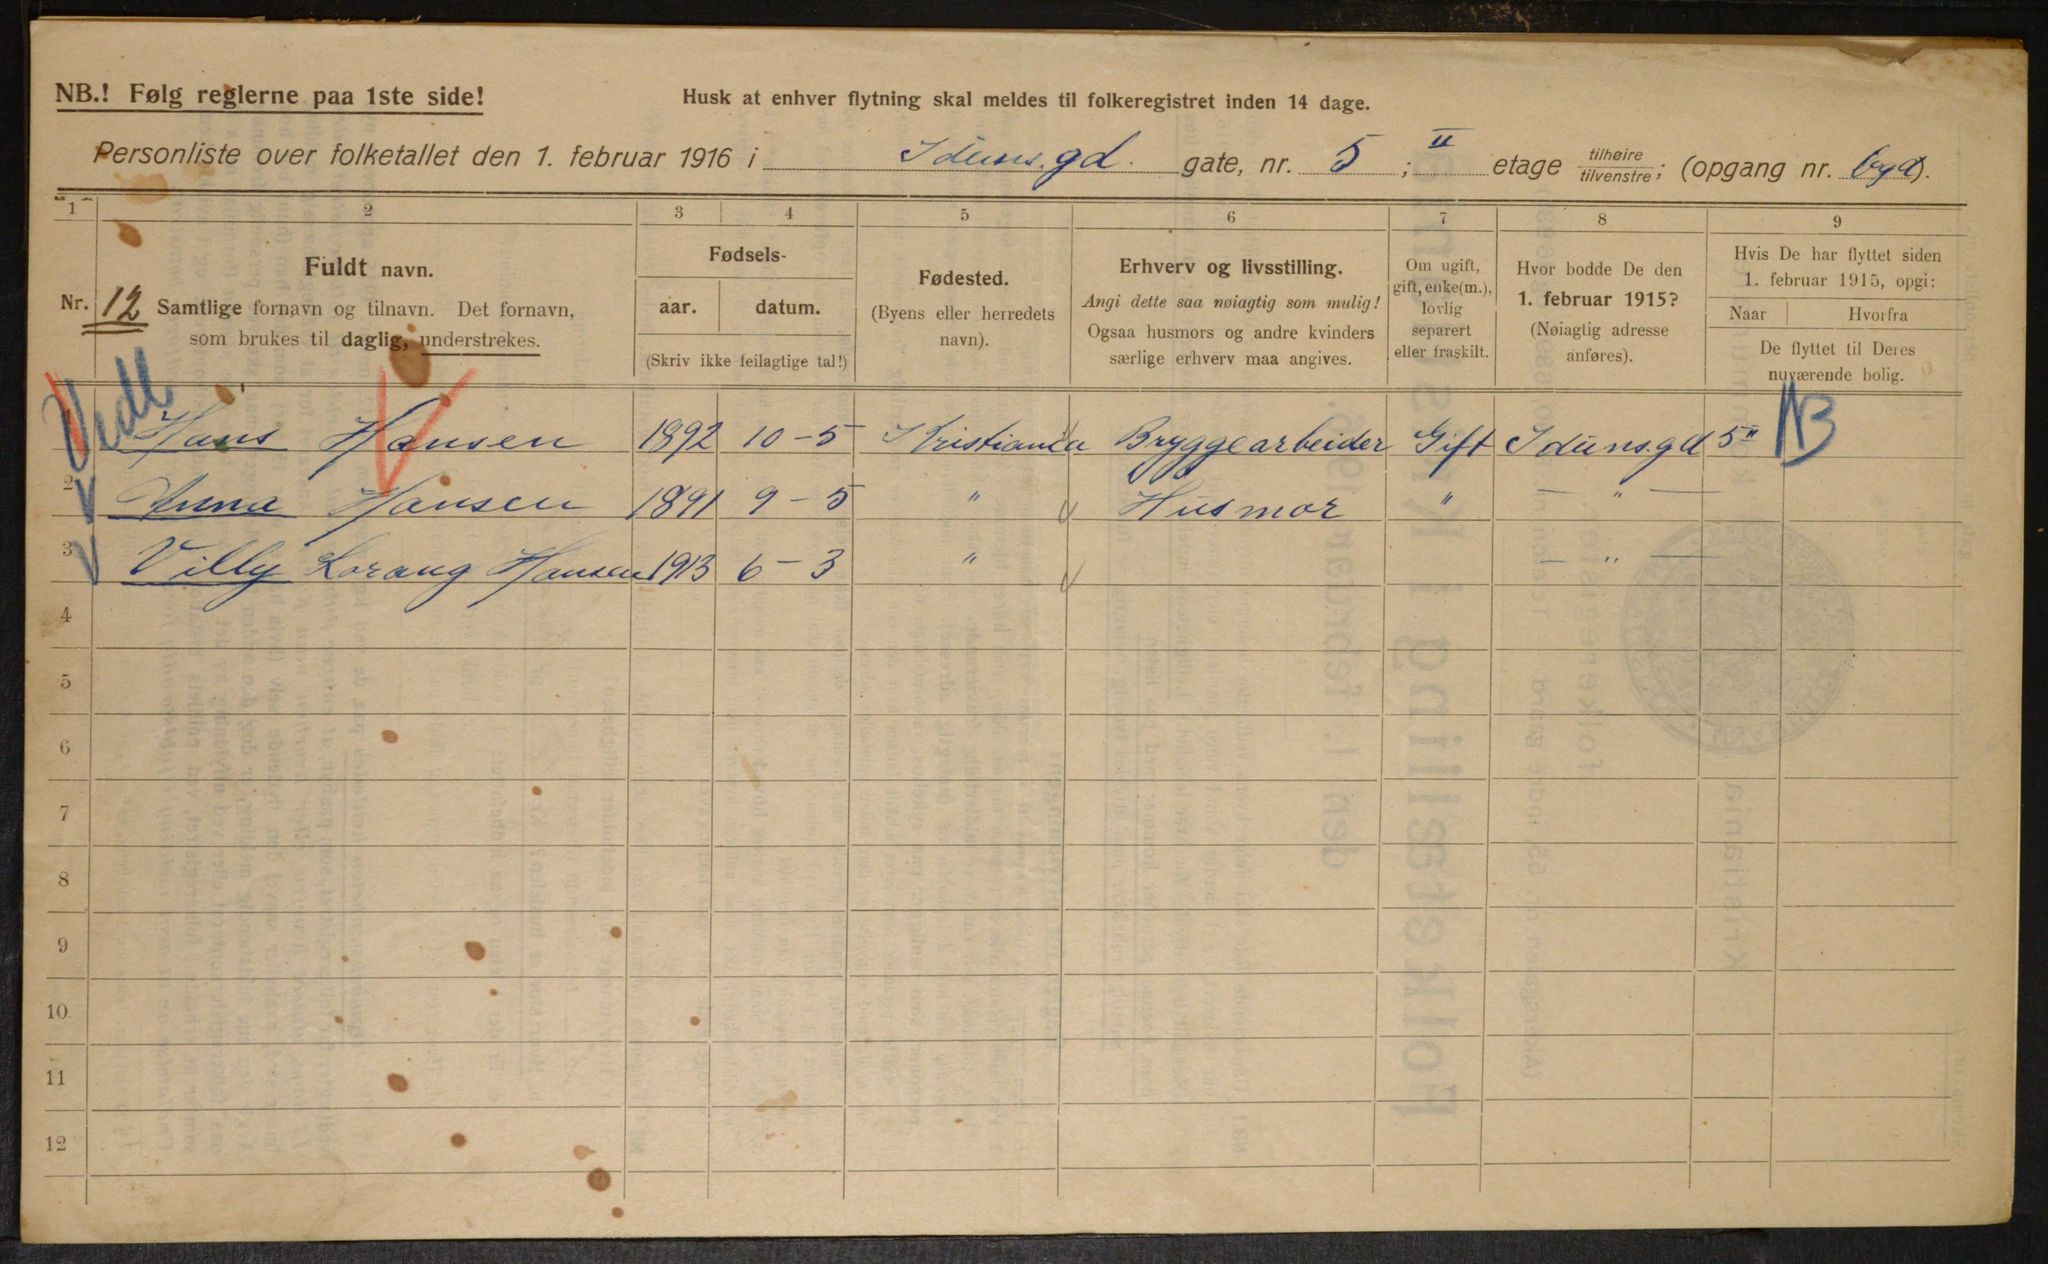 NB.! Følg reglerne paa 1ste side!
Husk at enhver flytning skal meldes til folkeregistret inden 14 dage.
Personliste over folketallet den 1. februar 1916 i Iduns.gd. gate, nr. 5 ; II etage tilhøire tilvenstre; (opgang nr. byd).
1 2 3 4 5 6 7 8 9
Nr. 12
Fuldt navn.
Samtlige fornavn og tilnavn. Det fornavn,
som brukes til daglig, understrekes.
Fødsels-
aar. datum.
(Skriv ikke feilagtige tal!)
Fødested.
(Byens eller herredets
navn).
Erhverv og livsstilling.
Angi dette saa nøiagtig som mulig!
Ogsaa husmors og andre kvinders
særlige erhverv maa angives.
Om ugift,
gift, enke(m.),
lovlig
separert
eller fraskilt.
Hvor bodde De den
1. februar 1915?
(Nøiagtig adresse
anføres).
Hvis De har flyttet siden
1. februar 1915, opgi:
Naar Hvorfra
De flyttet til Deres
nuværende bolig.
1 Hans Hansen 1892 10-5 Kristiania Bryggearbeider Gift Iduns.gd 5 II NB
2 Anna Hansen 1891 9-5 " Husmor " — " —
3 Villy Lorang Hansen 1913 6-3 " — " —
4
5
6
7
8
9
10
11
12